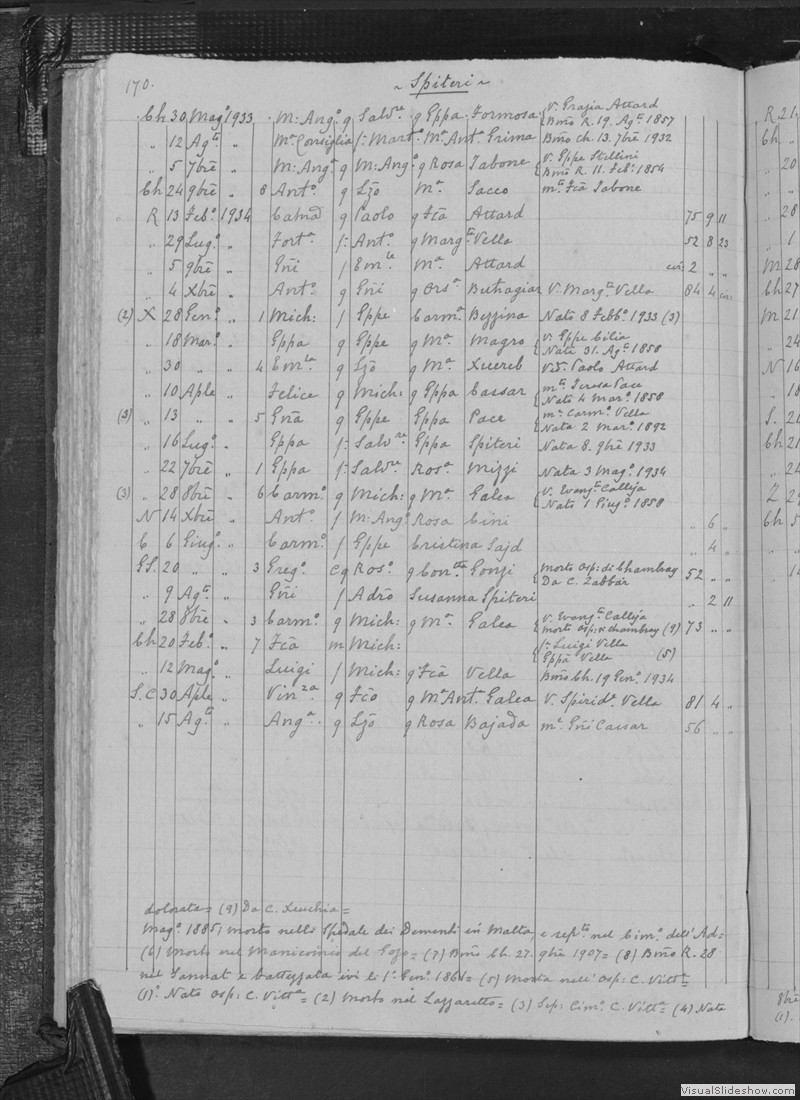 170. ~ Spiteri ~
Ch 30 Mag.º 1933 M: Ang.º g Salv.re g Gppa Formosa { V. Grazia Attard
Bmo R. 19. Ag.to 1857
" 12 Ag.to " M.a Consiglia f: Mart.º M.a Ant. Grima Bmo Ch. 13. 7bre 1932
" 5 7bre " M: Ang.º g M: Ang.º g Rosa Tabone { V. Gppe Stellini
Bmo R. 11. Feb.º 1854
Ch 24 9bre " 8 Ant.º g Ljo M.a Sacco m.to Fca Tabone
R 13 Feb.º 1934 g Paolo g Fca Attard 75 9 11
" 29 Lug.º " Fort.a f: Ant.º g Marg.ta Vella 52 8 23
" 5 9bre " Gni f Em.le M.a Attard 2 " "
" 4 Xbre " Ant.º g Gni g Ors.a Buttagiar V. Marg.ta Vella 84 4
(2) X 28 Gen.º " 1 Mich: f Gppe Carm.a Bezzina Nato 8 Febb.º 1933 (3)
" 18 Mar.º " Gppa g Gppe g M.a Magro { V. Gppe Cilia
Nata 31. Ag.to 1858
" 30 " " 4 Em.la g Ljo g M.a Xuereb V.V. Paolo Attard
" 10 Aple " Felice g Mich: g Gppa Cassar { m.to Teresa Pace
Nato 4 Mar.º 1858
(3) " 13 " " 5 Gna g Gppe Gppa Pace { m.a Carm.º Vella
Nata 2 Mar.º 1892
" 16 Lug.º " Gppa f: Salv.re Gppa Spiteri Nata 8. 9bre 1933
" 22 7bre " 1 Gppa f: Salv.re Ros.a Mizzi Nata 3 Mag.º 1934
(3) " 28 8bre " 6 Carm.º g Mich: g M.a Galea { V. Evang.ta Calleja
Nato 1 Giug.º 1858
N 14 Xbre " Ant.º f M: Ang.º Rosa Cini " 6 "
C 6 Giug.º " Carm.º f Gppe Cristina Sajd " 4 "
GS. 20 " " 3 Greg.º Cg Ros.º g Con.tta Gonzi { morto Osp: di Chambray
Da C. Zabbar 52 " "
" 9 Ag.to " Gni f Adro Susanna Spiteri " 2 11
" 28 8bre " 3 Carm.º g Mich: g M.a Galea { V. Evang.ta Calleja
morto Osp: Chambray (9) 73 " "
Ch 20 Feb.º " 7 Fca m Mich: { f: Luigi Vella
Gppa Vella (5)
" 12 Mag.º " Luigi f Mich: g Fca Vella Bmo Ch. 19 Gen.º 1934
S. C 30 Aple " Vin.za g Fco g M.a Ant. Galea V. Spirid.e Vella 81 4 "
" 15 Ag.to " Ang.a g Ljo g Rosa Bajada m.a Gni Cassar 56 " "
dolorata = (9) Da C. Xeuchia =
Mag.º 1885, morto nello Spedale dei Dementi in Malta, e sep.to nel Cim.º dell'Ad=
(6) Morto nel Manicomio del Gozo = (7) Bmo Ch. 27. 9bre 1907 = (8) Bmo R. 28
nel Sannat e battezzata ivi li 1.º Gen.º = (5) Morta nell'Osp: C. Vitt.a =
(1).º Nato Osp: C. Vitt.a = (2) Morto nel Lazzaretto = (3) Sep: Cim.º C. Vitt.a = (4) Nata
R 21
Ch "
" 20
" 28
" 1
M 28
Ch 27
M 21
" 24
N 16
" 18
S. 21
Ch 21
" 24
Z 2
Ch 5
" 1
8bre
(1).
VisualSlideshow.com